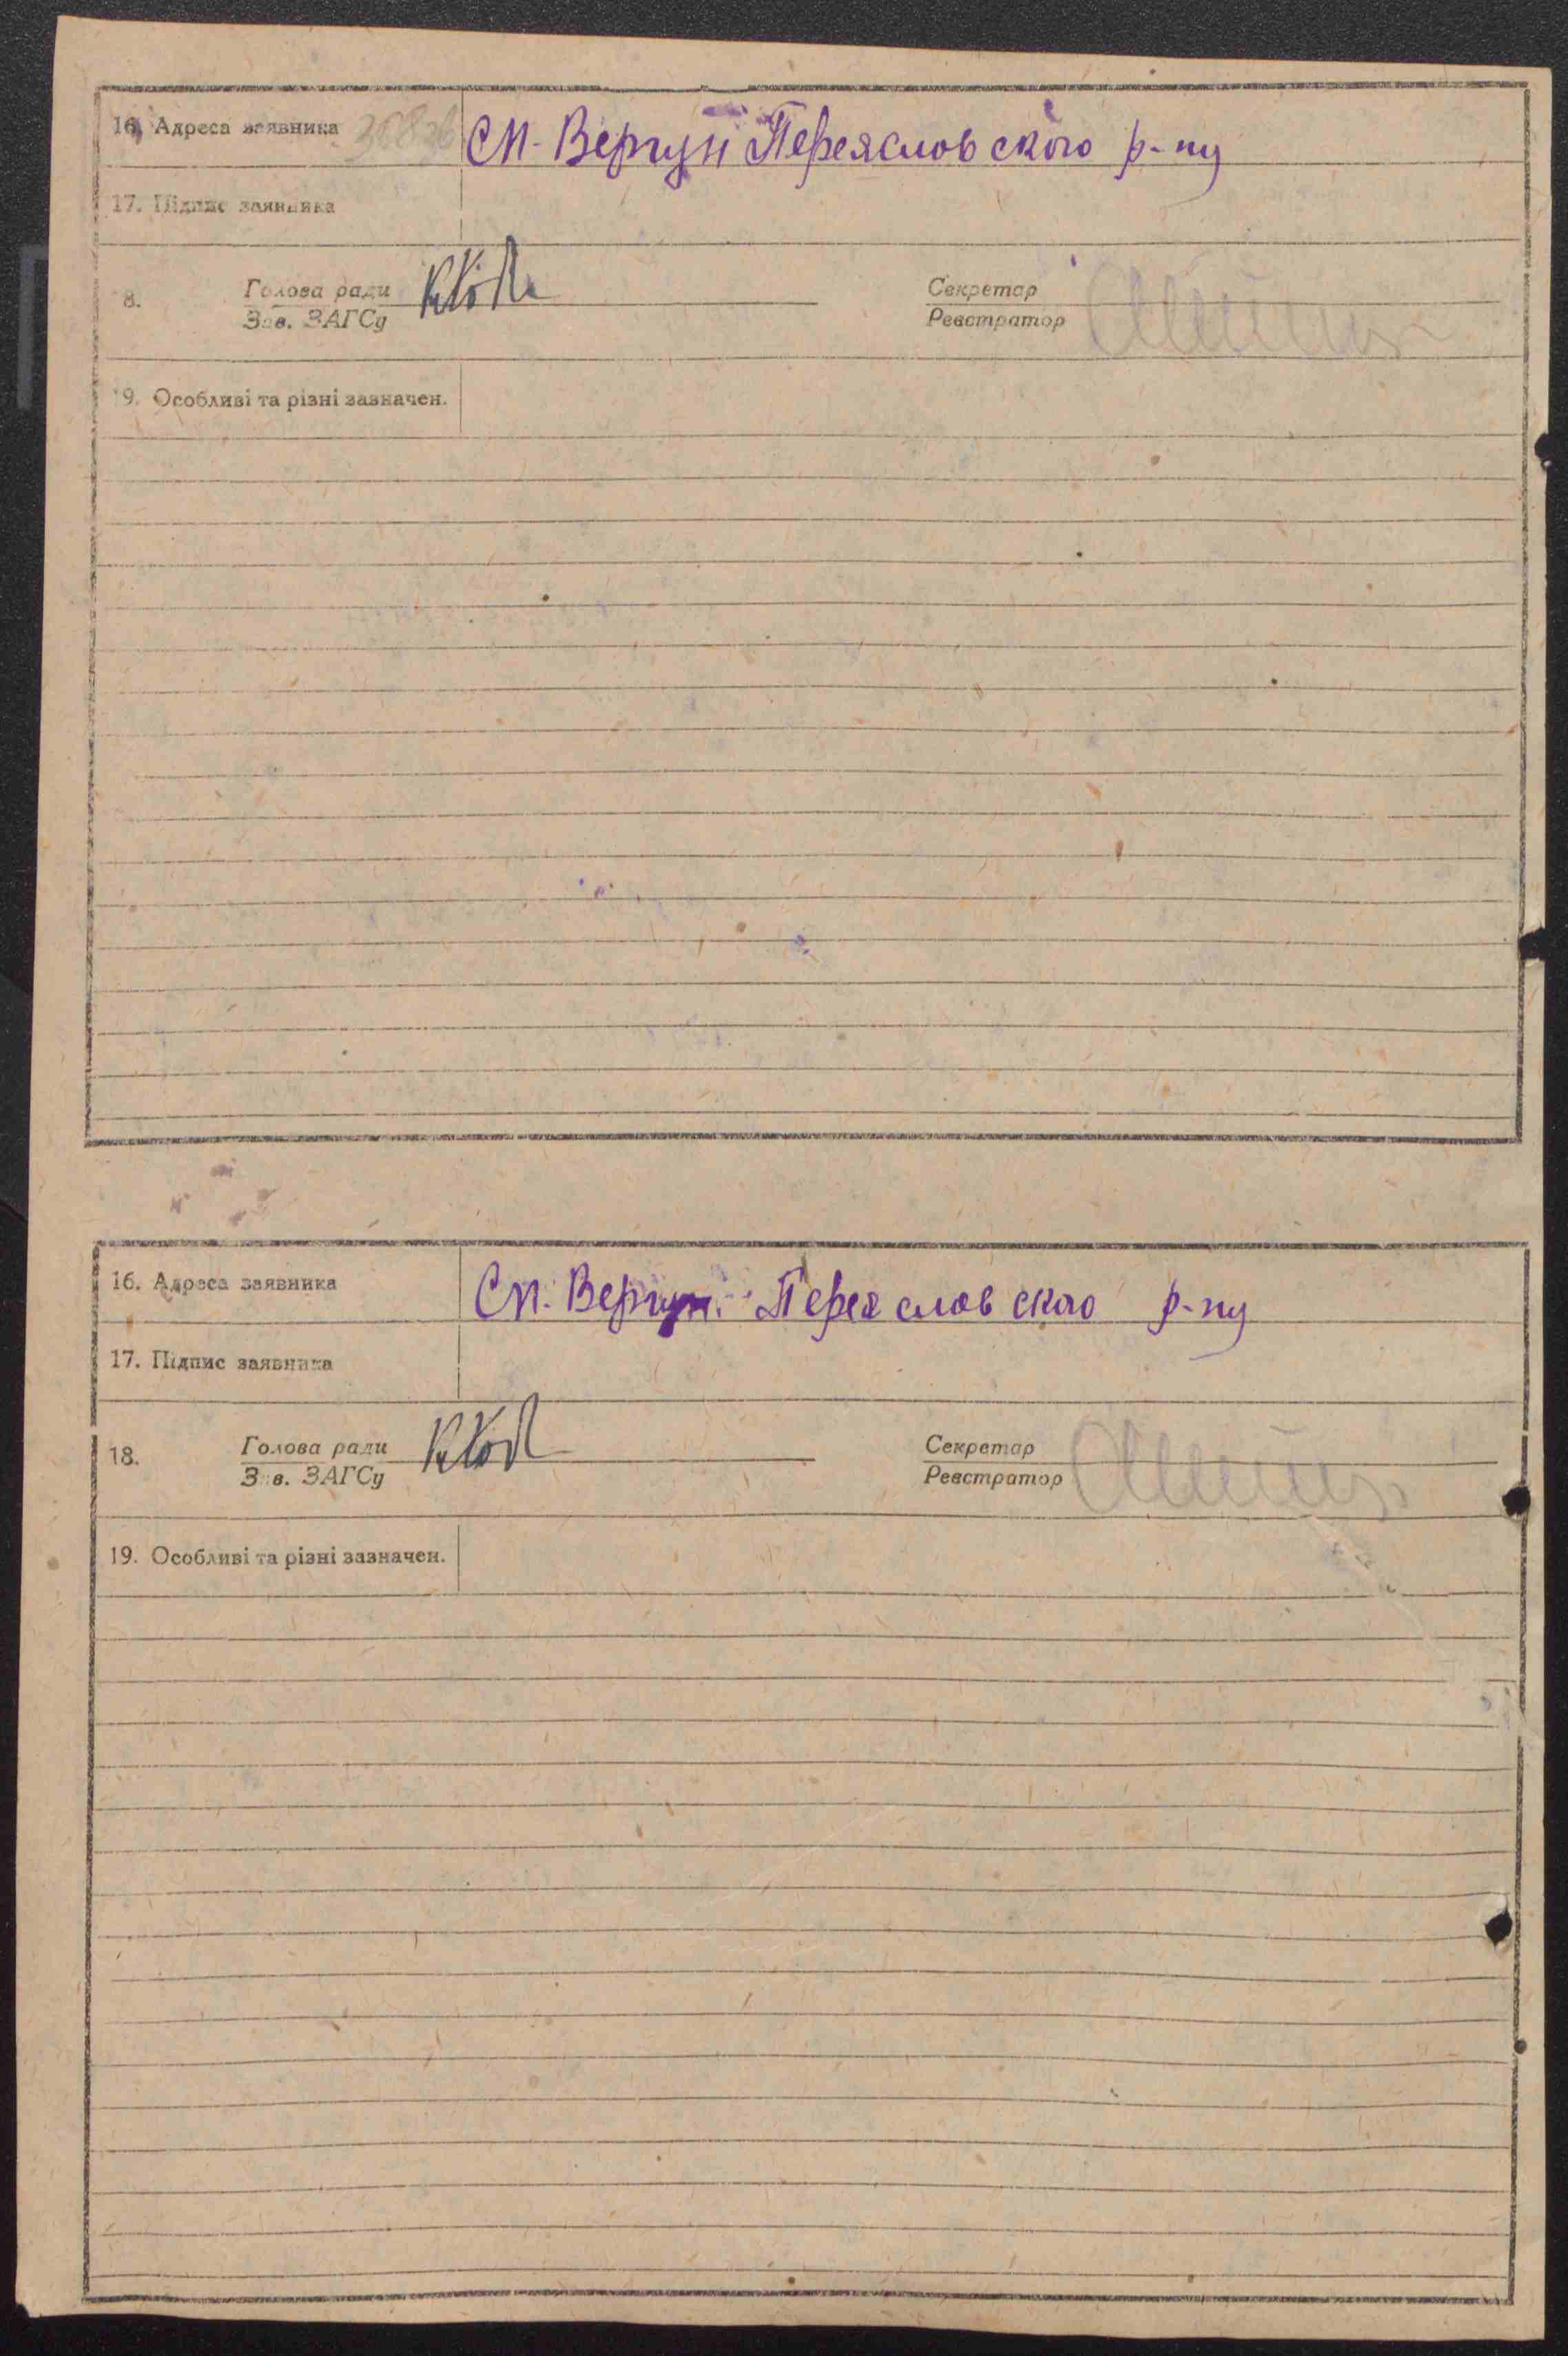 16. Адреса заявника Сп. Вергуни Переясловского р-ну
17. Підпис заявника
8. Голова ради Секретар
Зав. ЗАГСу Реєстратор
19. Особливі та різні зазначен.
16. Адреса заявника Сп. Вергуни Переясловского р-ну
17. Підпис заявника
18. Голова ради Секретар
Зав. ЗАГСу Реєстратор
19. Особливі та різні зазначен.